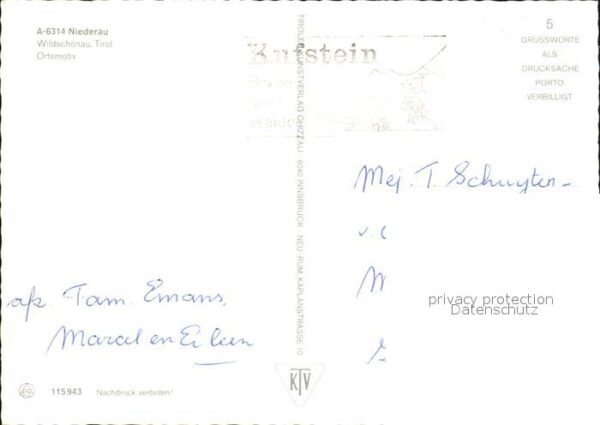 A-6314 Niederau
Wildschönau, Tirol
Ortsmotiv
Kufstein
TIROLER KUNSTVERLAG CHIZZALI · 6040 INNSBRUCK · NEU RUM, KAPLANSTRASSE 10
5
GRUSSWORTE
ALS
DRUCKSACHE
PORTO
VERBILLIGT
Mej. T. Schuyten-
v.
M
privacy protection
Datenschutz
afz. Fam. Emans.
Marcel en Eileen
115943 Nachdruck verboten!
KTV